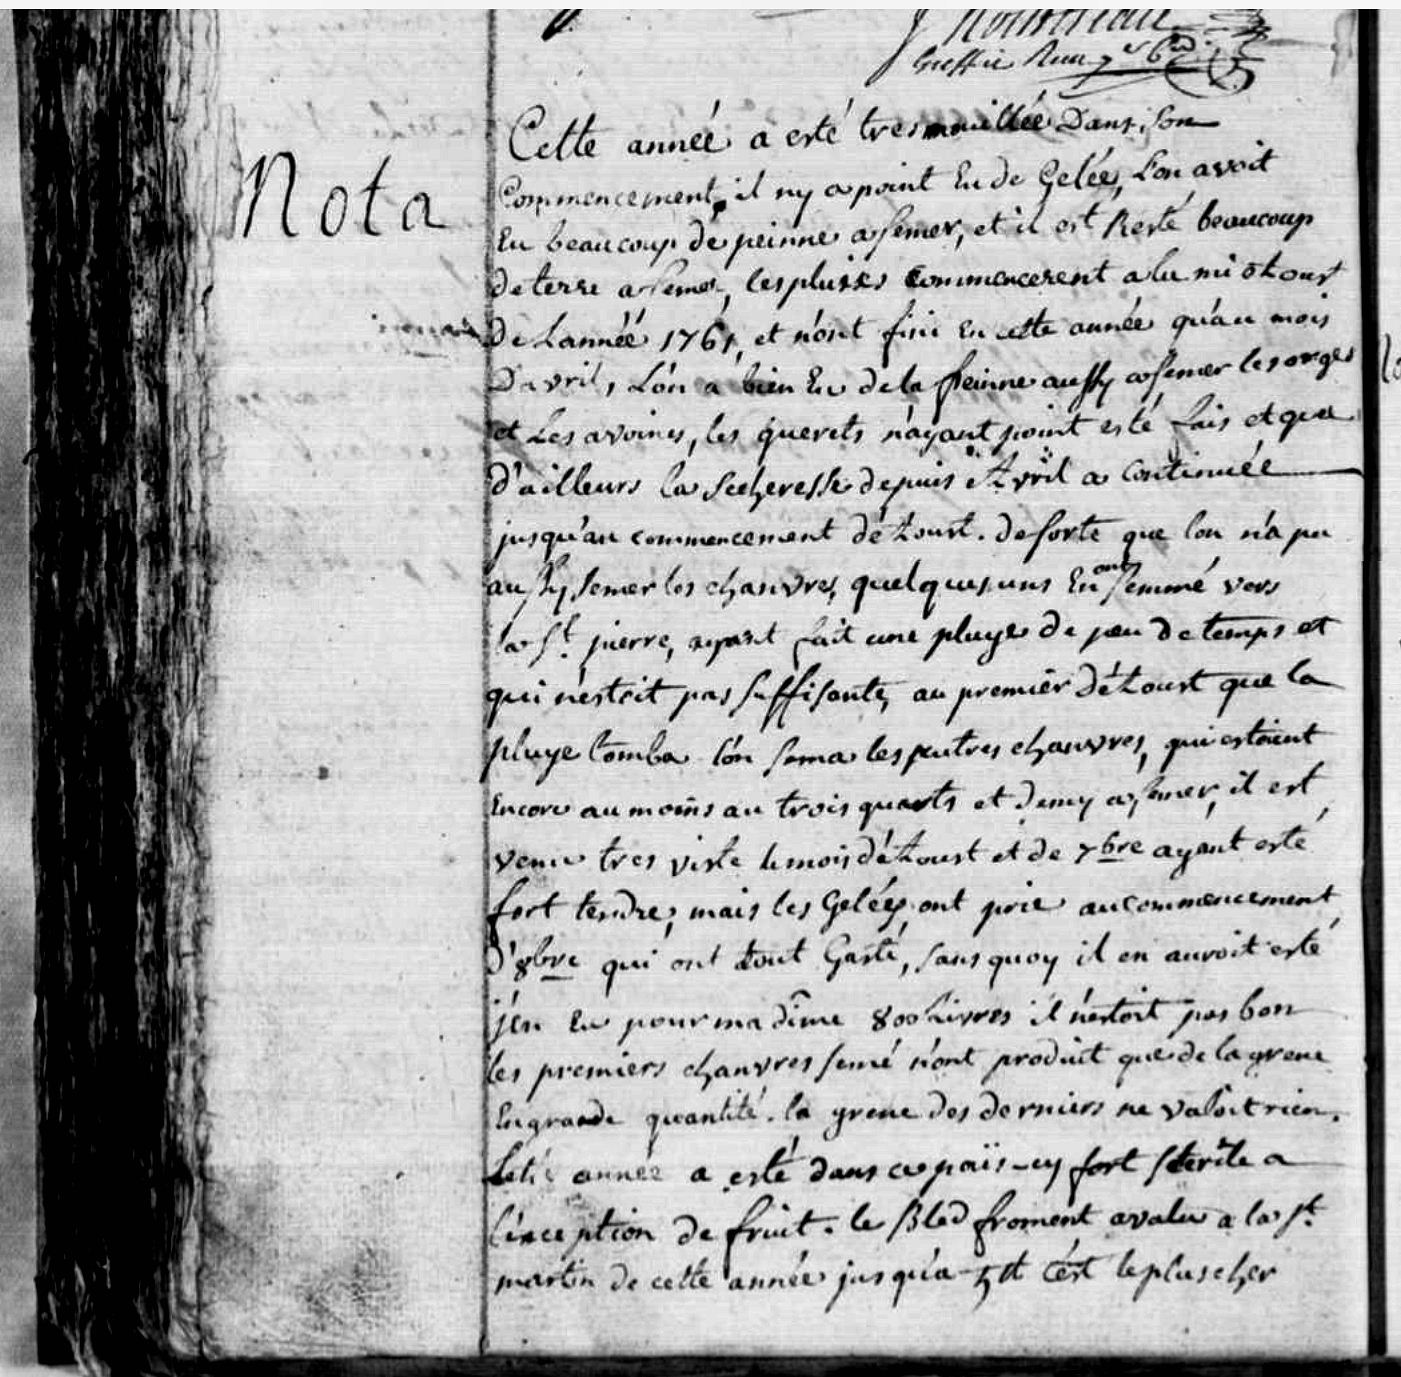 greffie
Nota
Cette année a esté tres mouillée Dans son
Commencement, il ny a point Eu de Gelée, L'on avoit
Eu beaucoup de peinne a semer, et il est Resté beaucoup
de terre a semer, les pluies commencerent a la mi Aoust
de Lannéé 1761, et n'ont fini En cette année qu'au mois
D'avril, L'on a bien Eu de la peinne aussy a semer les orges
et Les avoines, les guerets n'ayant point esté fais et que
d'ailleurs la Secheresse depuis Avril a Continuée
jusqu'au commencement d'éAoust. de sorte que lon n'a pu
aussy semer les chanvres, quelques uns En ont semmé vers
la St. pierre, ayant fait une pluye de peu de temps et
qui n'estoit pas suffisante, au premier d'éAoust que la
pluye tomba l'on sema les autres chanvres, qui estoient
Encore au moins au trois quarts et demy a semer, il est
venu tres viste le mois d'éAoust et de 7bre ayant esté
fort tendre, mais les Gelées ont prie au commencement
d'8bre qui ont tout Gasté, sans quoy il en auroit esté
j'en Eu pour ma dîme 800 Livres il n'estoit pas bon
les premiers chanvres semé n'ont produit que de la grene
En grande quantité. la grene des derniers ne valoit rien.
Cette année a esté dans ce païs-cy fort sterile a
l'exception de fruit. le Bled froment a valu a la St.
martin de cette année jusqu'a 5tt c'est le plus cher